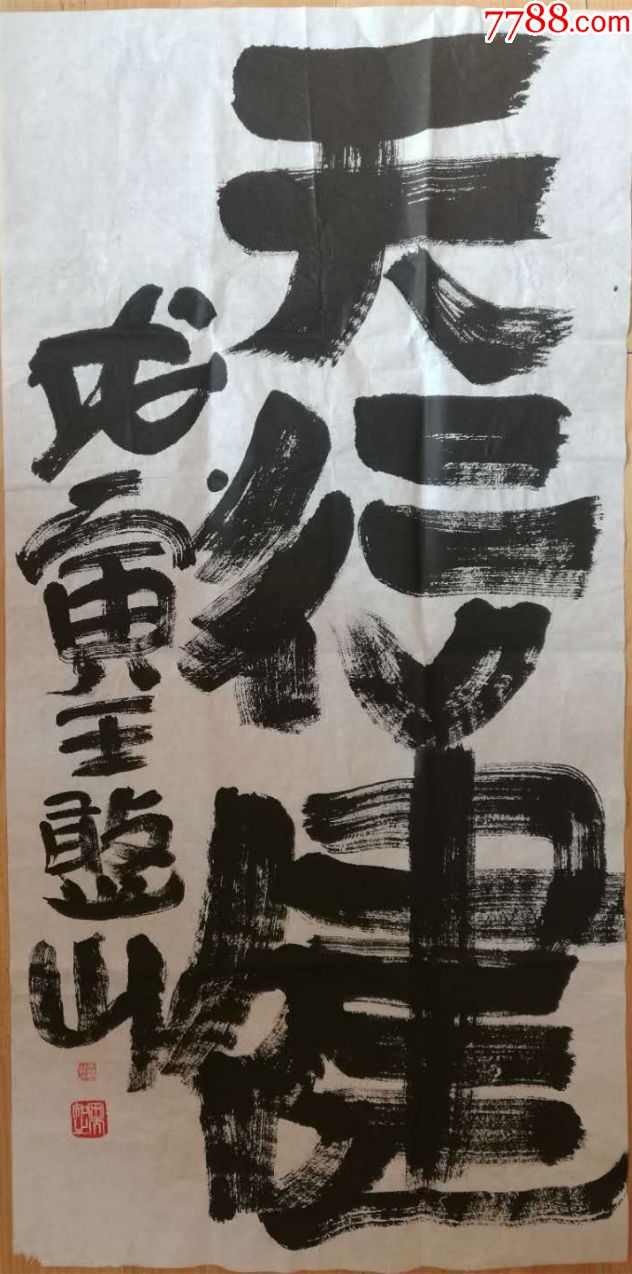 7788.com
天行健
戊寅王憨山